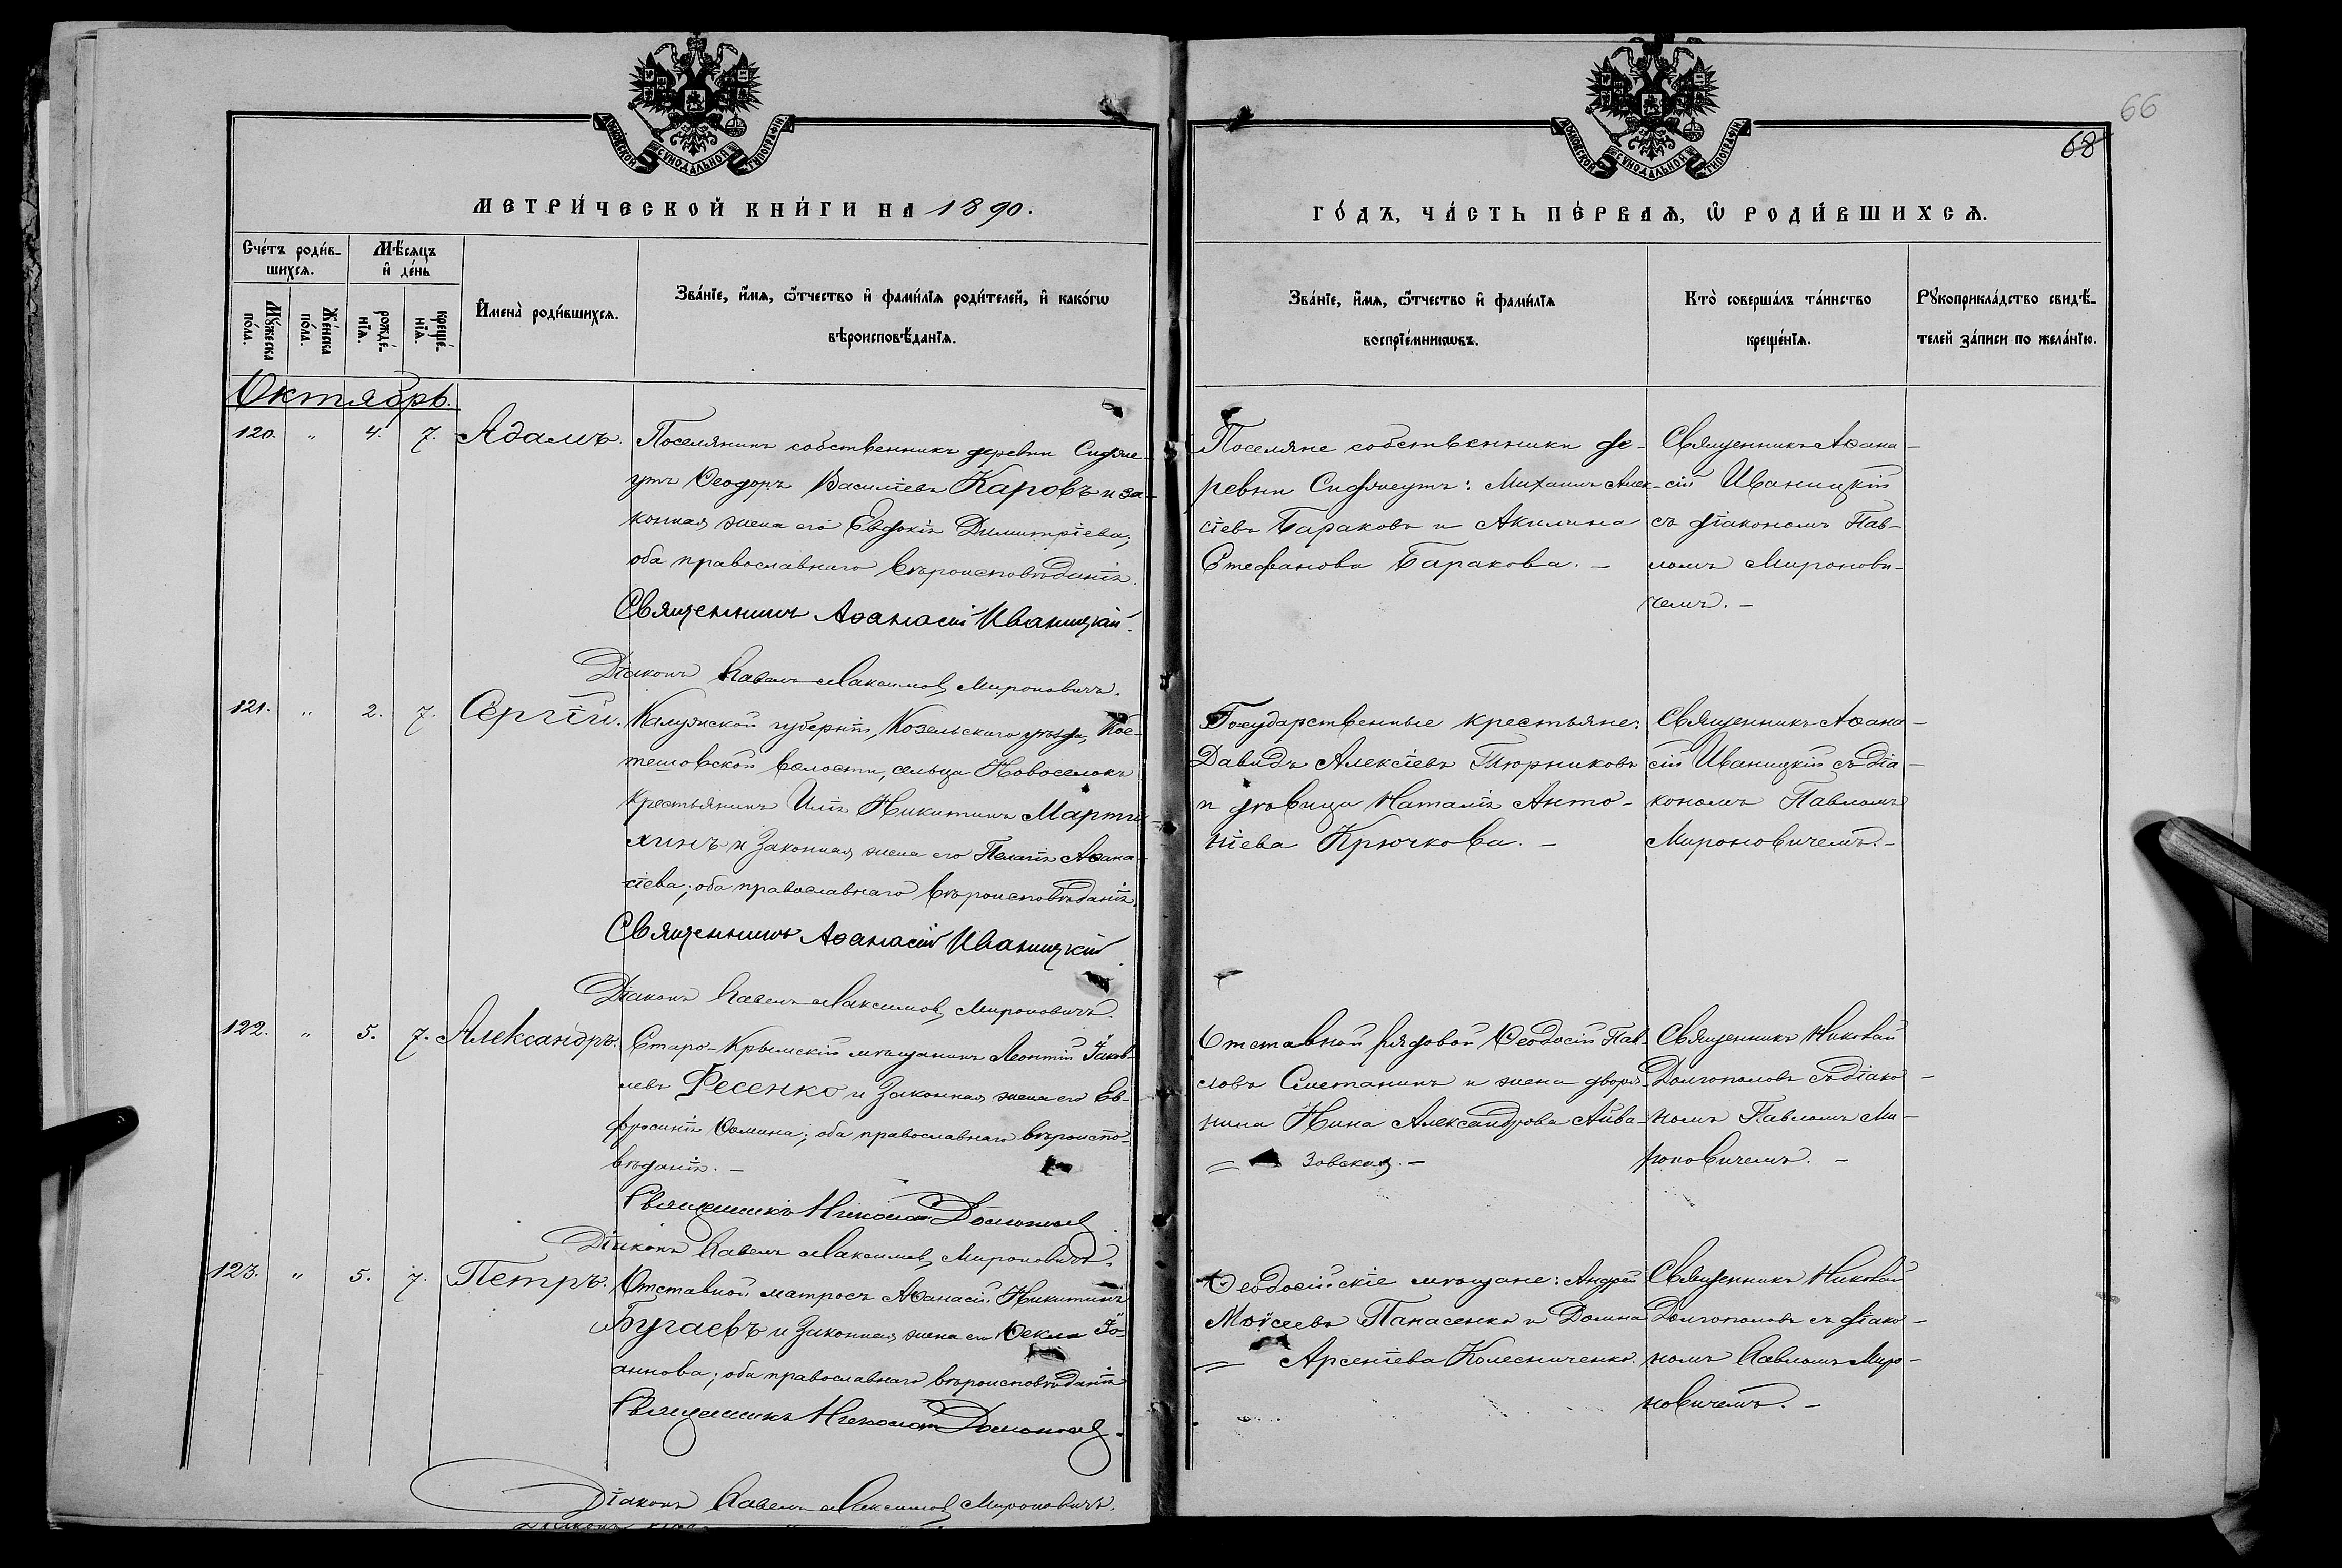 МОСКОВСКОЙ СѴНОДАЛЬНОЙ ТИПОГРАФІИ
МЕТРИ́ЧЕСКОЙ КНИ́ГИ НА 1890.
Счéтъ роди́в-
шихсѧ.
Мѣ́сѧцъ
и҆ дéнь
Мꙋ́жеска
по́ла.
Жéнска
по́ла.
рождé-
нїѧ.
крещé-
нїѧ.
И҆менà роди́вшихсѧ.
Зва́нїе, и҆́мѧ, ѻ҆́тчество и҆ фами́лїѧ роди́телей, и҆ како́гѡ
вѣроисповѣ́данїѧ.
Октябрь.
120. " 4. 7. Адамъ.
Поселянинъ собственникъ деревни
Ѳеодоръ Василіевъ Каровъ и за-
конная жена его Евдокія Димитріева;
оба православнаго вѣроисповѣданія.
Священникъ Аѳанасій Иваницкій.
Діаконъ Павелъ Максимовъ Мироновичъ.
121. " 2. 7. Сергій.
Калужской губерніи, Козельскаго уѣзда,
волости, сельца Новоселокъ
крестьянинъ Илія Никитинъ Марти-
и законная жена его Пелагія Аѳана-
сіева; оба православнаго вѣроисповѣданія.
Священникъ Аѳанасій Иваницкій
Діаконъ Павелъ Максимовъ Мироновичъ.
122. " 5. 7. Александръ.
Старо-Крымскій мѣщанинъ Леонтій Іаков-
левъ Фесенко и законная жена его Ев-
фросинія Ѳомина; оба православнаго вѣроиспо-
вѣданія. –
Священникъ Николай Долгополовъ
Діаконъ Павелъ Максимовъ Мироновичъ.
123. " 5. 7. Петръ.
Отставной матросъ Аѳанасій Никитинъ
Бугаевъ и законная жена его Ѳекла Іо-
аннова; оба православнаго вѣроисповѣданія
Священникъ Николай Долгополовъ.
Діаконъ Павелъ Максимовъ Мироновичъ.
66
68
МОСКОВСКОЙ СѴНОДАЛЬНОЙ ТИПОГРАФІИ
ГО́ДЪ, ЧА́СТЬ ПЕ́РВАѦ, Ѡ҆ РОДИ́ВШИХСѦ.
Зва́нїе, и҆́мѧ, ѻ҆́тчество и҆ фами́лїѧ
воспрїéмникѡвъ.
Кто̀ соверша́лъ та́инство
крещéнїѧ.
Рꙋкоприкла́дство свидѣ́-
телей за́писи по жела́нїю.
Поселяне собственники де-
ревни : Михаилъ Алек-
сіевъ Бараковъ и Акилина
Стефанова Баракова. –
Священникъ Аѳана-
сій Иваницкій
съ діакономъ Пав-
ломъ Миронови-
чемъ. –
Государственные крестьяне:
Давидъ Алексіевъ Тюрниковъ
и дѣвица Наталія Анто-
ніева Крючкова. –
Священникъ Аѳана-
сій Иваницкій съ діа-
кономъ Павломъ
Мироновичемъ. –
Отставной рядовой Ѳеодосій Пав-
ловъ Сметанинъ и жена дворя-
нина Нина Александрова Айва-
зовская. –
Священникъ Николай
Долгополовъ съ діако-
номъ Павломъ Ми-
роновичемъ. –
Ѳеодосійскіе мѣщане: Андрей
Моѵсеевъ Панасенко и Домна
Арсеніева Колесниченко.
Священникъ Николай
Долгополовъ съ діако-
номъ Павломъ Миро-
новичемъ. –